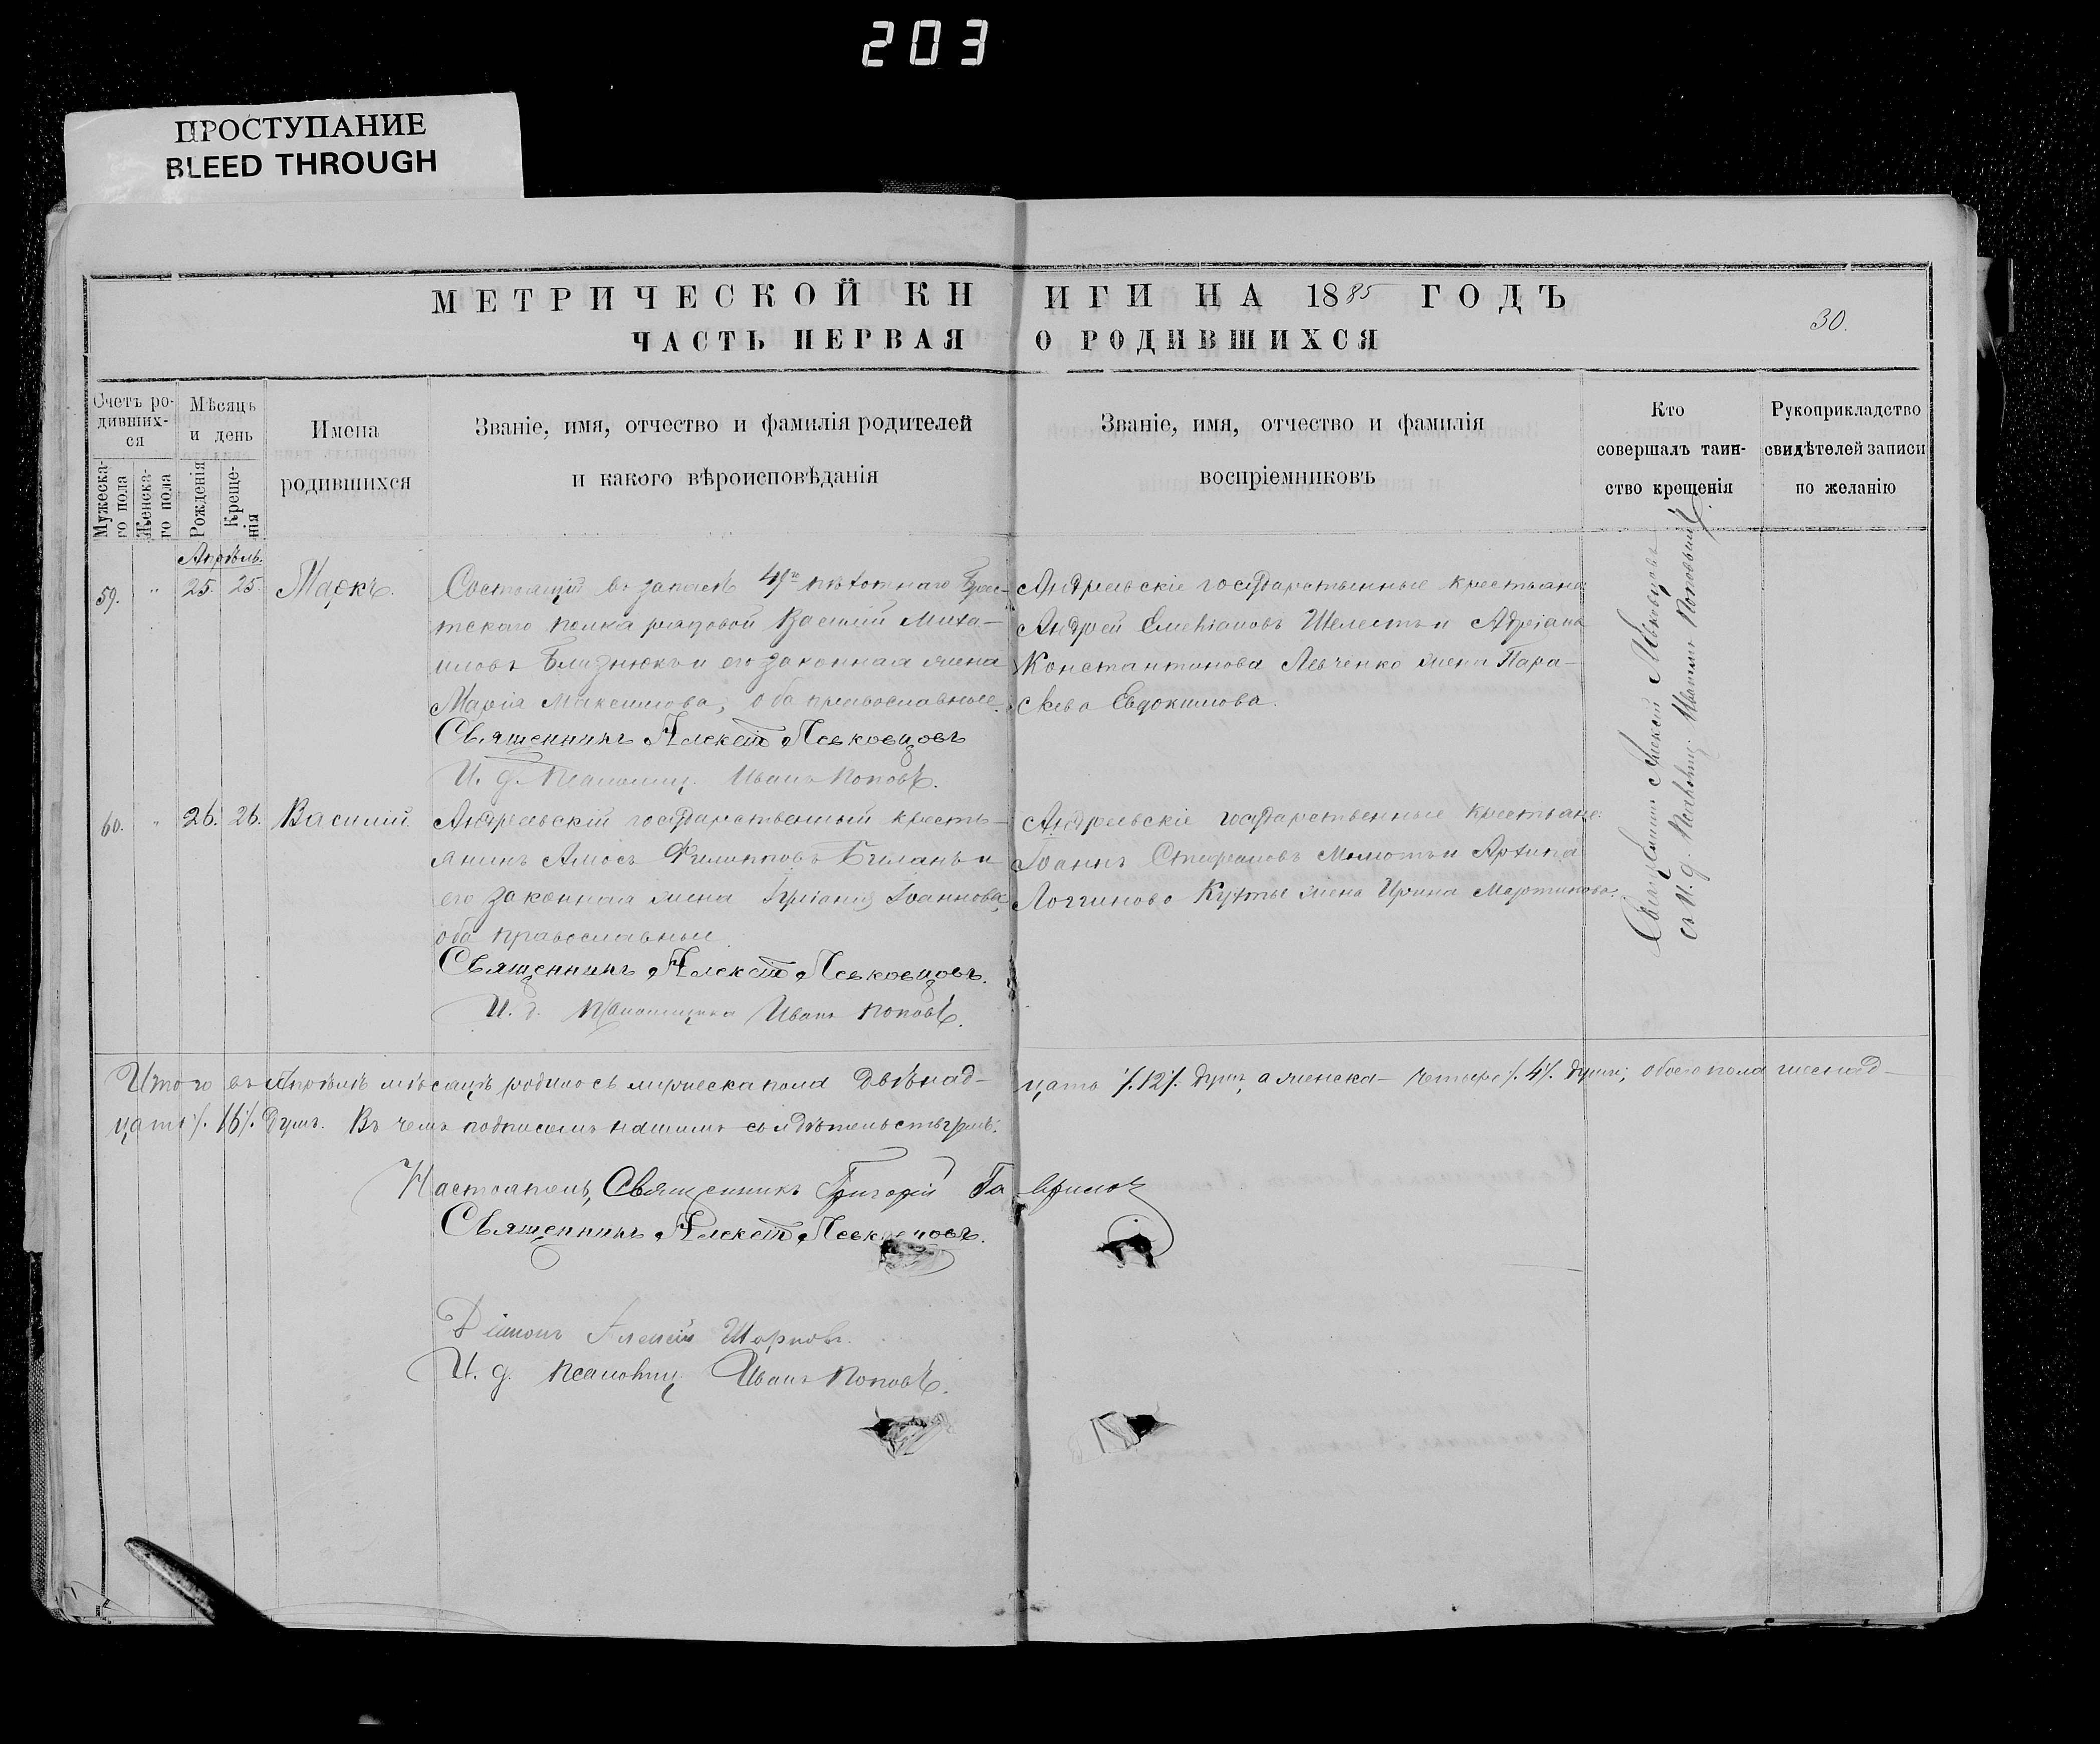 203
ПРОСТУПАНИЕ
BLEED THROUGH
МЕТРИЧЕСКОЙ КНИГИ НА 1885 ГОДЪ
30.
ЧАСТЬ ПЕРВАЯ О РОДИВШИХСЯ
Счетъ ро-
дивших-
ся
Мужеска-
го пола
Женска-
го пола
Мѣсяцъ
и день
Рожденія
Креще-
нія
Имена
родившихся
Званіе, имя, отчество и фамилія родителей
и какого вѣроисповѣданія
Званіе, имя, отчество и фамилія
воспріемниковъ
Кто
совершалъ таин-
ство крещенія
Рукоприкладство
свидѣтелей записи
по желанію
Апрѣль.
59. " 25. 25. Маркъ.
Состоящій въ запасѣ пѣхотнаго Брес-
тскаго полка рядовой Василій Миха-
иловъ Близнюкъ и его законная жена
Марія Максимова, оба православные.
Священникъ Алексій Левковцовъ
И. д. Псаломщ. Иванъ Поповъ.
Андреевскіе государственные крестьяне
Андрей Шелестъ и Адріана
Константинова Левченко жена Пара-
скева Евдокимова.
60. " 26. 26. Василій.
Андреевскій государственный кресть-
янинъ Амосъ Филипповъ и
его законная жена Іоаннова,
оба православные
Священникъ Алексій Левковцовъ.
И. д. Псаломщика Иванъ Поповъ.
Андреевскіе государственные крестьяне:
Іоаннъ Стефановъ и Архипа
Логгинова Кухты жена Ирина Мартинова.
Священникъ Алексій Левковцовъ
съ И. д. Псаломщ. Иваномъ Поповымъ
Итого въ Апрѣлѣ мѣсяцѣ родилось мужеска пола двѣнад-
цать %12% душъ, а женска- четыре %4% души; обоего пола шестнад-
цать %16% душъ. Въ чемъ подписомъ нашимъ свидѣтельствуемъ:
Настоятель, Священникъ Григорій Гавриловъ
Священникъ Алексій Левковцовъ.
Діаконъ Алексій
И. д. псаломщ. Иванъ Поповъ.